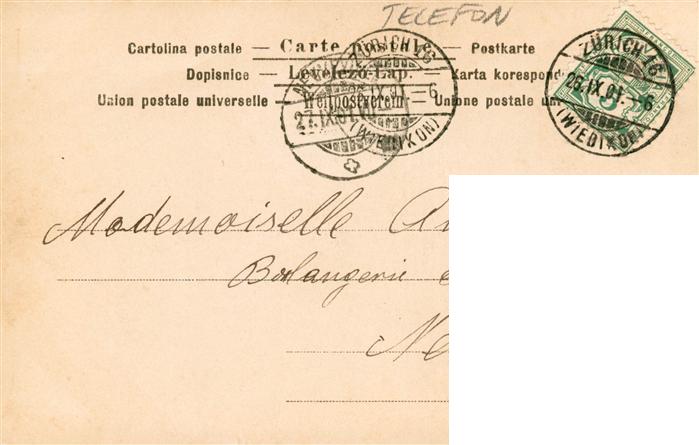 TELEFON
Cartolina postale — Carte postale — Postkarte
Dopisnice — Levelező-Lap. — Karta korespond
Union postale universelle — Weltpostverein — Unione postale uni
ZÜRICH 16
26.IX.01.–6
(WIEDIKON)
ZÜRICH 16
IX.01 –6
(WIEDIKON)
27.IX.01.
Mademoiselle An
Boulangerie
Ne